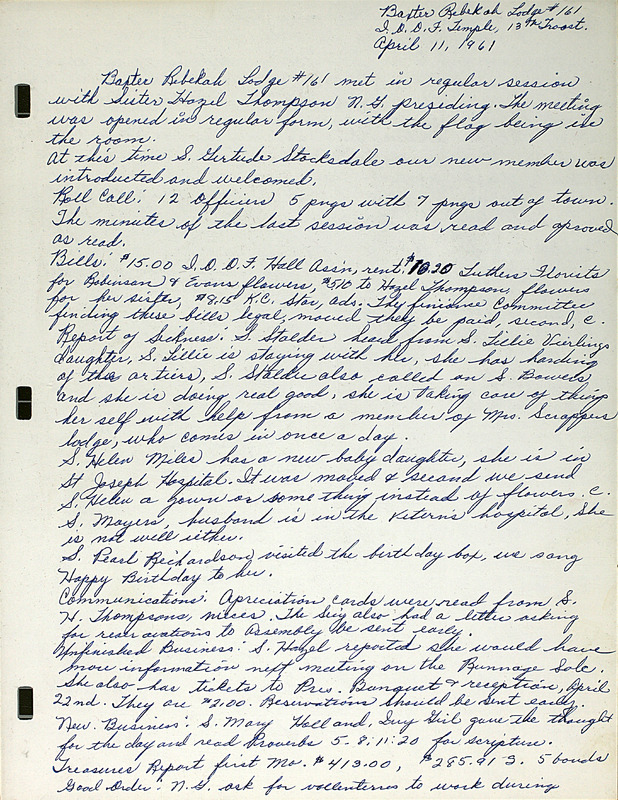 Baxter Rebekah Lodge #161
I.O.O.F. Temple, 13th Troost.
April 11, 1961
Baxter Rebekah Lodge #161 met in regular session
with Sister Hazel Thompson N.G. presiding. The meeting
was opened in regular form, with the flag being in
the room.
At this time S. Gertude Stocksdale our new member was
introducted and welcomed.
Roll Call: 12 Officers 5 pngs with 7 pngs out of town.
The minutes of the last session was read and aproved
as read.
Bills: $15.00 I.O.O.F. Hall Ass'n, rent, $10.20 Luthers Florists
for Robinson & Evans flowers, $5.10 to Hazel Thompson, flowers
for her sister, $8.15 K.C. Star, ads. The finince Committee
finding these bills legal, moved they be paid, second, C.
Report of Sickness: S. Stalder heard from S. Lillie Vierlings
daughter, S. Lillie is staying with her, she has harding
of the artiers, S. Stalder also called on S. Bowers,
and she is doing real good, she is taking care of things
her self with help from a member of Mrs. Scrappers
lodge, who comes in once a day.
S. Helen Miles has a new baby daughter, she is in
St Joseph Hospital. It was moved & second we send
S. Helen a gown or something instead of flowers. C.
S. Mayers, husband is in the Vetern's hospital, she
is not well either.
S. Pearl Reichardson, visited the birthday box, we sang
Happy Birthday to her.
Communications: Apreciation cards were read from S.
H. Thompsons, nieces. The Sec'y also had a letter asking
for reservations to Assembly be sent early.
Unfinished Business: S. Hazel reported she would have
more information next meeting on the Rummage Sale.
She also has tickets to Pres. Banquet & reception, April
22nd. They are $2.00. Reservations should be sent early.
New Business: S. Mary Holland, gave the thought
for the day and read Proverbs 5-8:11:20 for scripture.
Treasures Report first Mo. $413.00, $285.91 3. 5 bonds
Good Order: N.G. ask for vollenterrs to work during